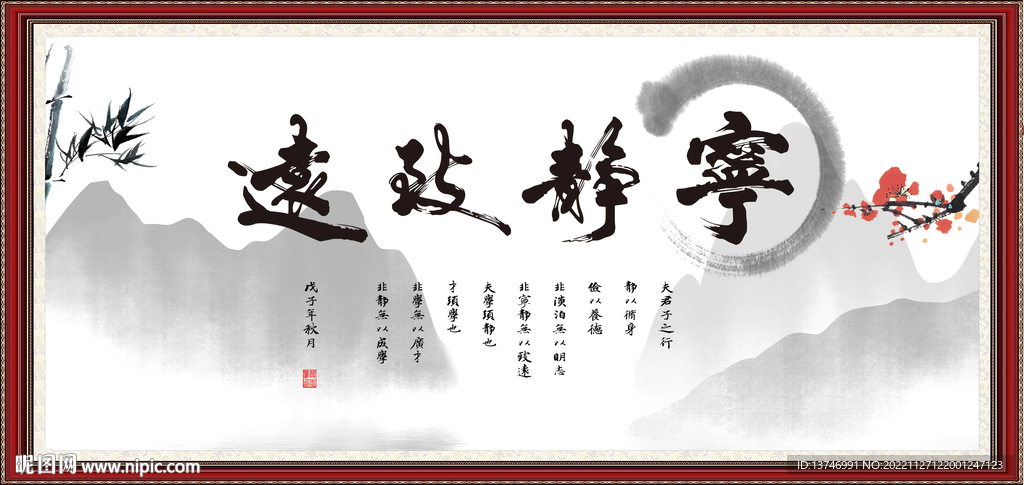 寧靜致遠
夫君子之行
靜以脩身
儉以養德
非淡泊無以明志
非寧靜無以致遠
夫學須靜也
才須學也
非學無以廣才
非靜無以成學
戊子年秋月
昵图网 www.nipic.com
ID:13746991 NO:20221127122001247123